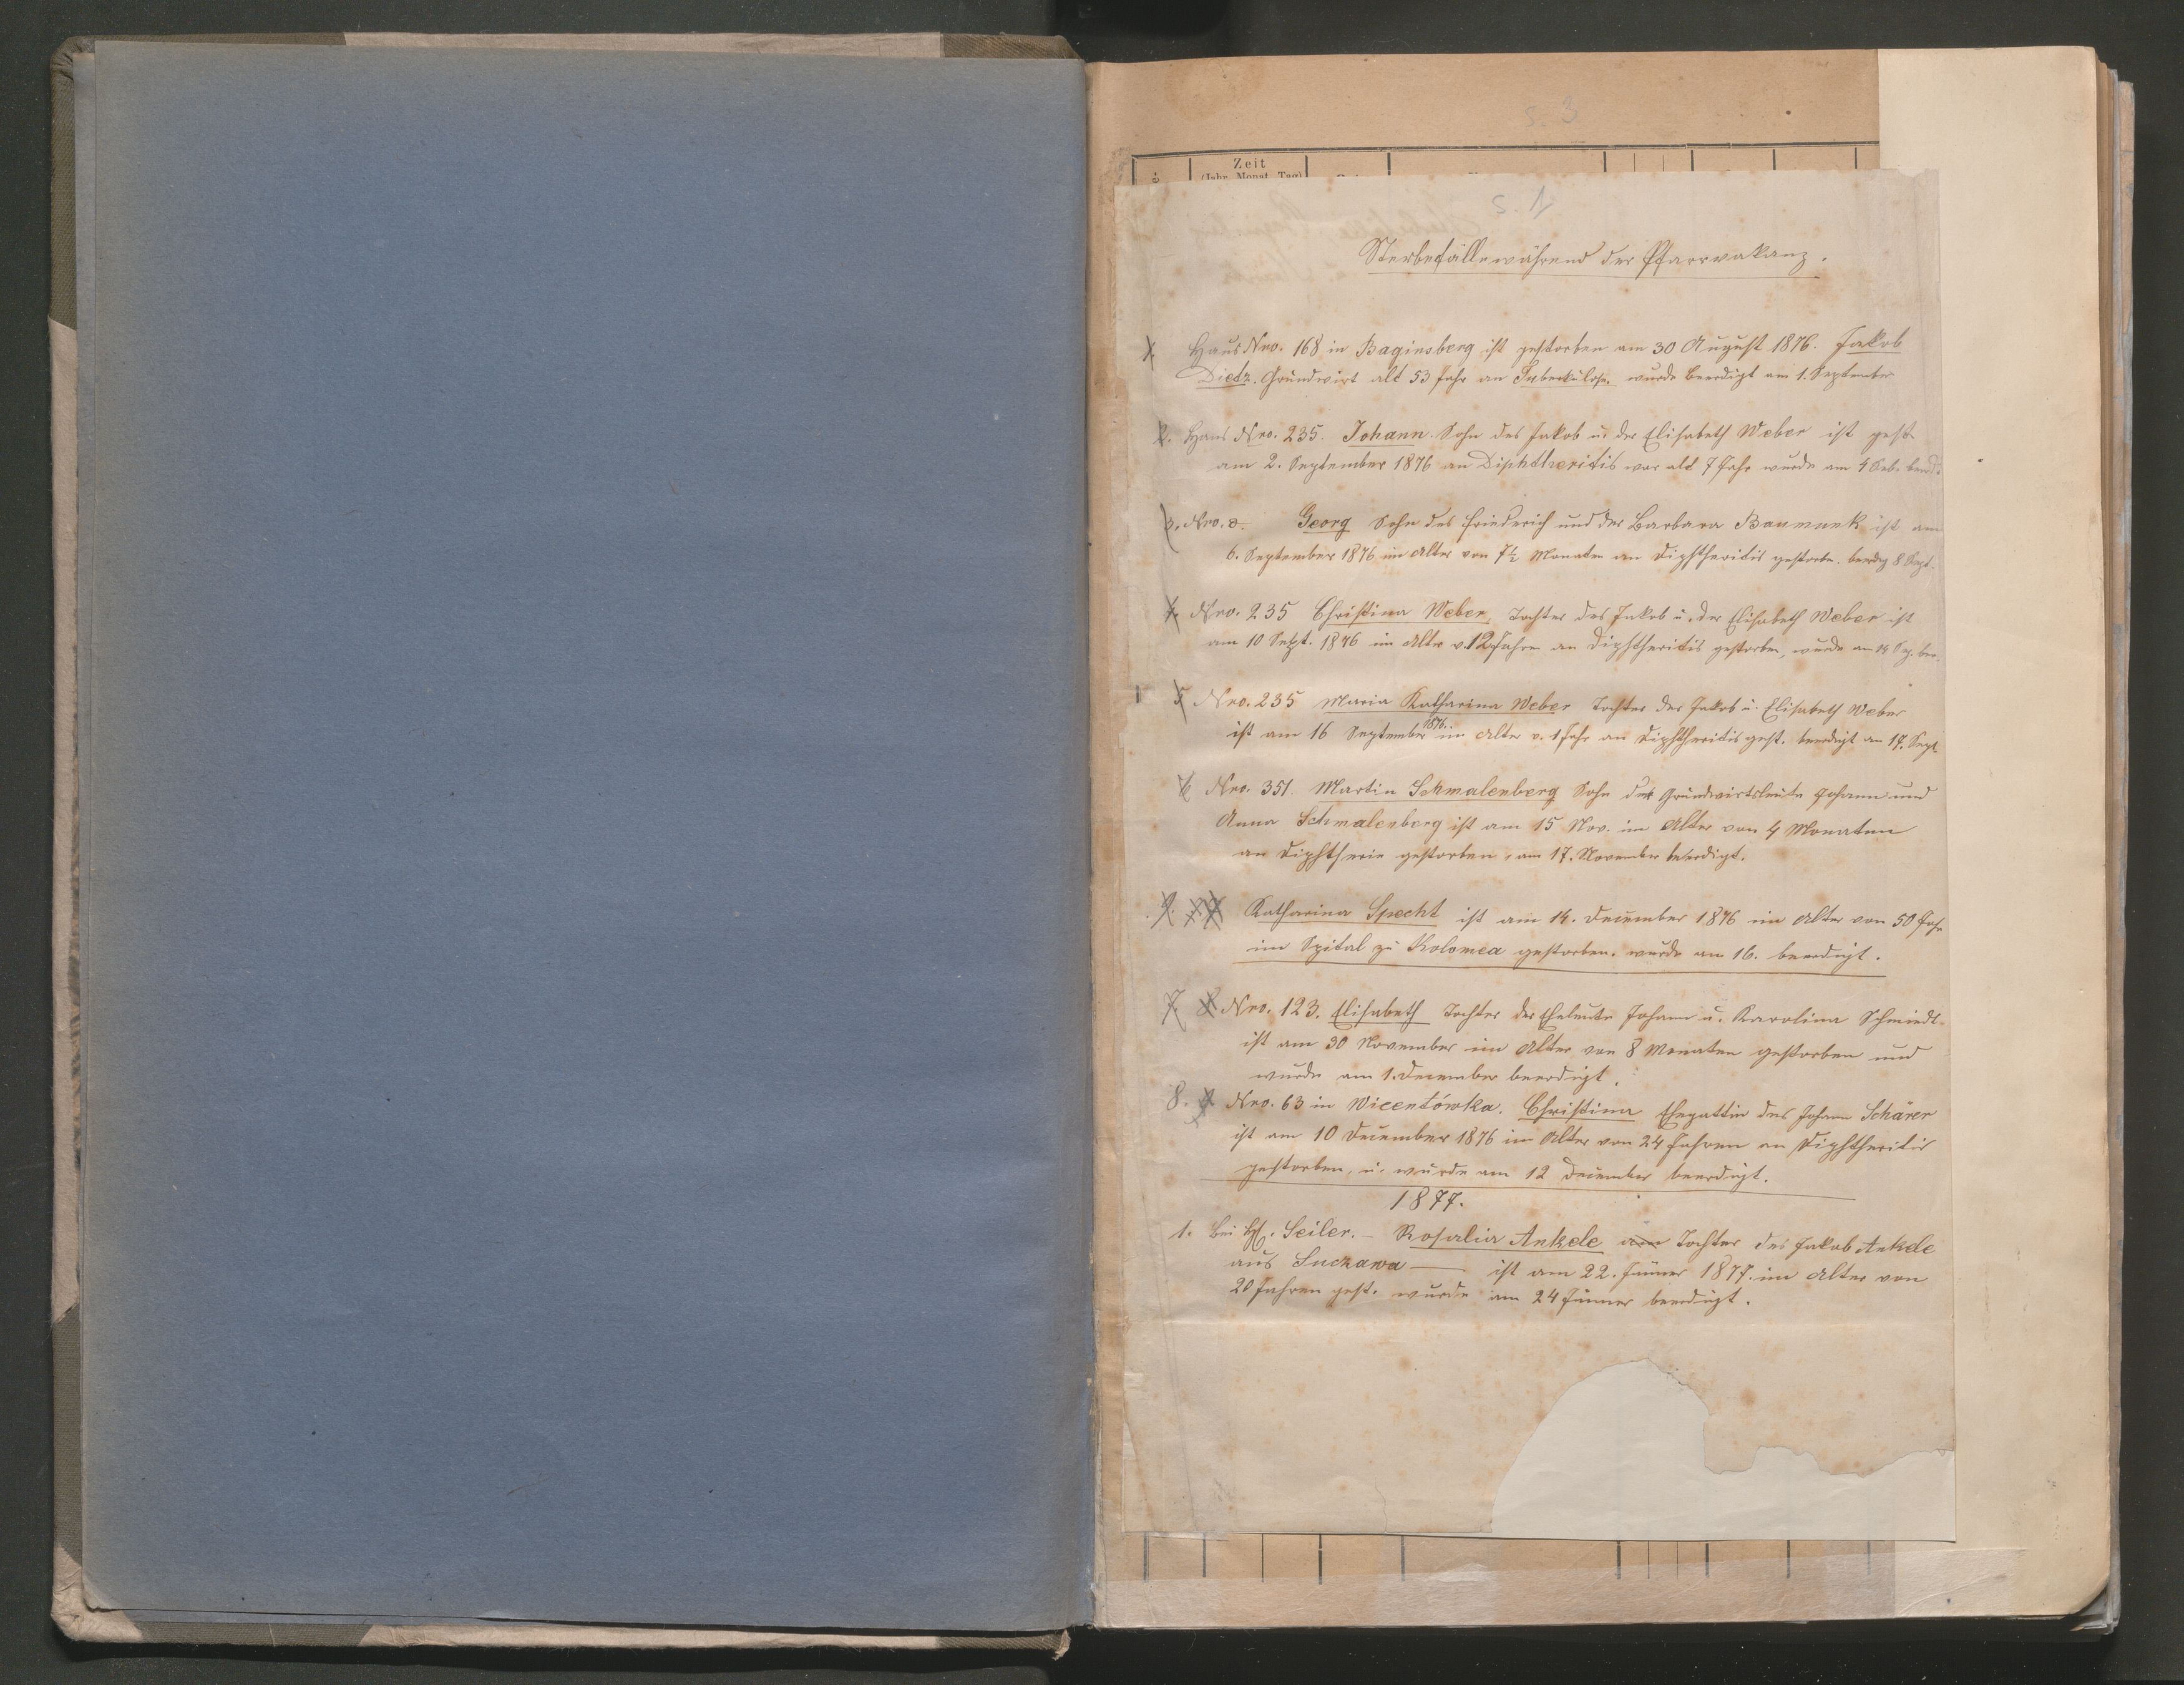 s. 3
Zeit
(Jahr, Monat, Tag)
s. 1
Sterbefälle während der Pfarrvakanz.
Haus Nro. 168 in Baginsberg ist gestorben am 30 August 1876. Jakob
Dietz. Grundwirt alt 53 Jahr an Tuberkulose, wurde beerdigt am 1. September
2. Haus Nro. 235. Johann Sohn des Jakob u. der Elisabeth Weber ist gest.
am 2. September 1876 an Diphtheritis war alt 7 Jahr wurde am 4 Seb. beerd.
3. Nro. Georg Sohn des Friederich und der Barbara Baumunk ist am
6. September 1876 im Alter von 7½ Monaten an Diphtheritis gestorbe. beerdg 8 Sept.
4. Nro. 235 Christina Weber, Tochter des Jakob u. der Elisabeth Weber ist
am 10 Sept. 1876 im Alter v. 12 Jahre an Diphtheritis gestorben, wurde am Sep. bee.
5 Nro. 235 Maria Katharina Weber Tochter des Jakob u. Elisabeth Weber
ist am 16 September 1876. im Alter v. 1 Jahr an Diphtheritis gest. beerdigt am 17. Sept.
6 Nro. 351. Martin Schmalenberg Sohn der Grundwirtsleute Johann und
Anna Schmalenberg ist am 15 Nov. im Alter von 4 Monaten
an Diphtherie gestorben, am 17. November beerdigt.
9. Katharina Specht ist am 14. December 1876 im Alter von 50 Jahr
im Spital zu Kolomea gestorben. wurde am 16. beerdigt.
7. 8. Nro. 123. Elisabeth Tochter der Eheleute Johann u. Karolina Schmiedt
ist am 30 November im Alter von 8 Monaten gestorben und
wurde am 1. December beerdigt.
8. Nro. 63 in Wicentówka. Christina Ehegattin des Johann Schärer
ist am 10 December 1876 im Alter von 24 Jahren an Diphtheritis
gestorben, u. wurde am 12 December beerdigt.
1877.
1. Bei H. Seiler. – Rosalia Ankele am Tochter des Jakob Ankele
aus Suczawa — ist am 22. Jänner 1877. im Alter von
20 Jahren gest. wurde am 24 Jänner beerdigt.